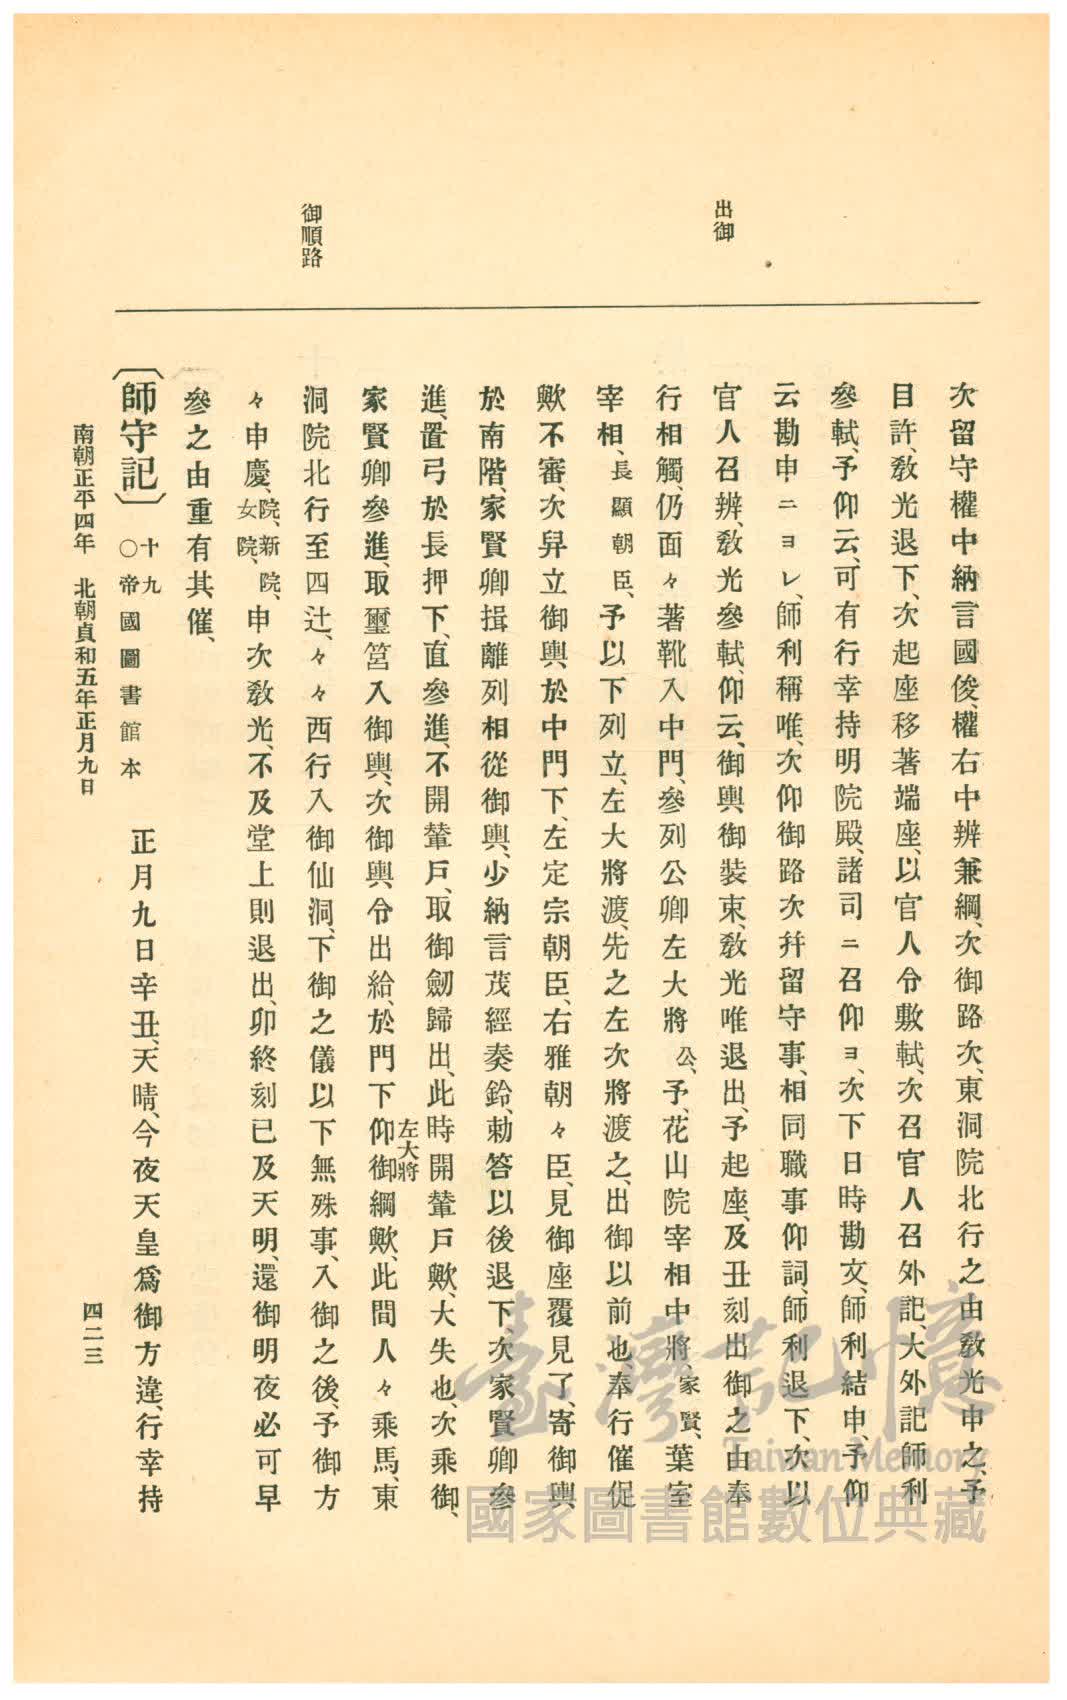 出御
御順路
次留守權中納言國俊、權右中辨兼綱、次御路次、東洞院北行之由敎光申之、予
目許、敎光退下、次起座移著端座、以官人令敷軾、次召官人召外記、大外記師利
參軾、予仰云、可有行幸持明院殿、諸司ニ召仰ヨ、次下日時勘文、師利結申、予仰
云勘申ニヨレ、師利稱唯、次仰御路次幷留守事、相同職事仰詞、師利退下、次以
官人召辨、敎光參軾、仰云、御輿御裝束、敎光唯退出、予起座、及丑刻出御之由奉
行相觸、仍面々著靴入中門、參列公卿左大將公、予、花山院宰相中將、家賢、葉室
宰相、長顯朝臣、予以下列立、左大將渡、先之左次將渡之、出御以前也、奉行催促
歟不審、次舁立御輿、於中門下、左定宗朝臣、右雅朝々臣、見御座覆見了、寄御輿、
於南階、家賢卿揖離列相從御輿、少納言茂經奏鈴、勅答以後退下、次家賢卿參
進、置弓於長押下、直參進、不開輦戶、取御劒歸出、此時開輦戶歟、大失也、次乘御、
家賢卿參進、取璽筥入御輿、次御輿令出給、於門下仰御綱歟、此間人々乘馬、東
左大將
洞院北行至四辻、々々西行入御仙洞、下御之儀以下無殊事、入御之後、予御方
々申慶、院、新院、女院、申次敎光、不及堂上則退出、卯終刻已及天明、還御明夜必可早
參之由重有其催、
〔師守記〕十九○帝國圖書館本 正月九日辛丑、天晴、今夜天皇爲御方違、行幸持
南朝正平四年 北朝貞和五年正月九日
四二三
臺灣記憶
Taiwan Memory
國家圖書館數位典藏